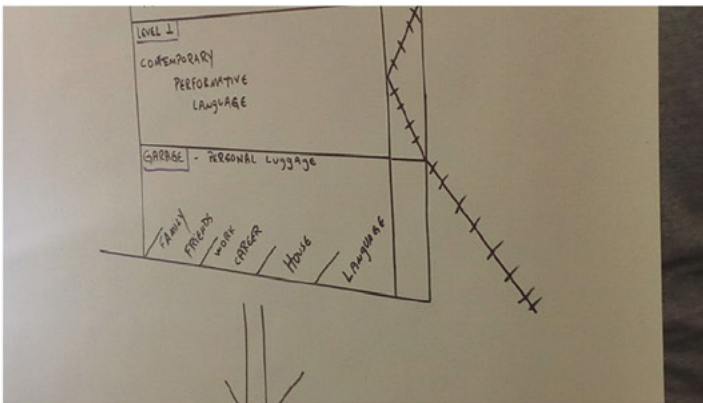 LEVEL 1
CONTEMPORARY
PERFORMATIVE
LANGUAGE
GARAGE - PERSONAL LUGGAGE
FAMILY
FRIENDS
WORK
CAREER
HOUSE
LANGUAGE